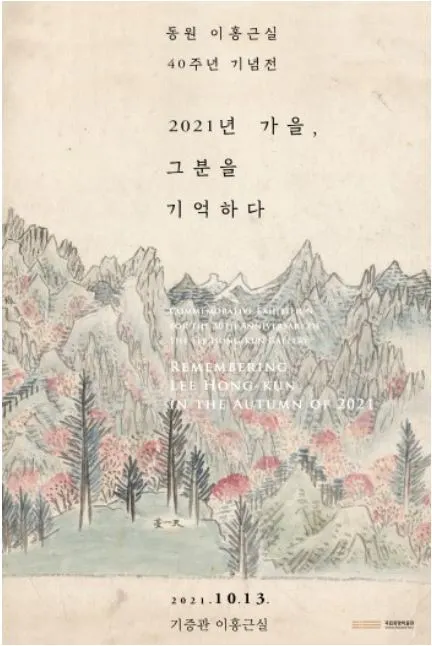 동원 이홍근실
40주년 기념전
2021년 가을,
그분을
기억하다
Commemorative Exhibition
for the 40th Anniversary of
the Lee Hong-kun Gallery
Remembering
Lee Hong-kun
in the Autumn of 2021
2021.10.13.
기증관 이홍근실
국립중앙박물관